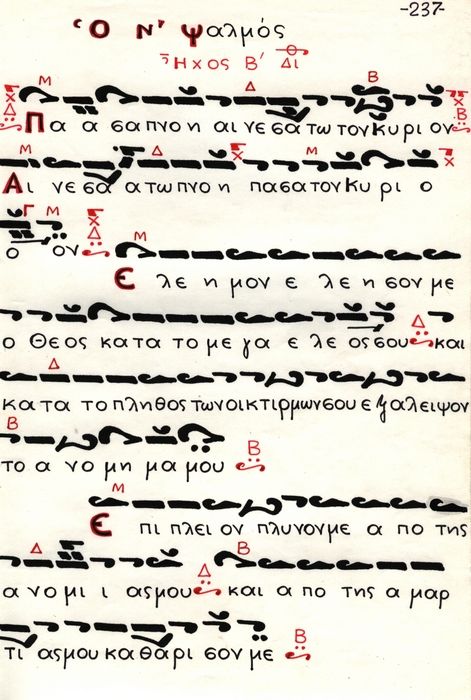 -237-
Ὁ Ν' Ψαλμός
Ἦχος Β' Δι
Πα α σα πνο η αι νε σα τω τον κυ ρι ον
Αι νε σα α τω πνο η πα σα τον Κυ ρι ο
ο ον Ε λε η μον ε λε η σον με
ο Θε ος κα τα το με γα ε λε ος σου και
κα τα το πλη θος των οι κτιρ μων σου ε ξα λει ψον
το α νο μη μα μου
Ε πι πλει ον πλυ νον με α πο της
α νο μι ι ας μου και α πο της α μαρ
τι ας μου κα θα ρι σον με